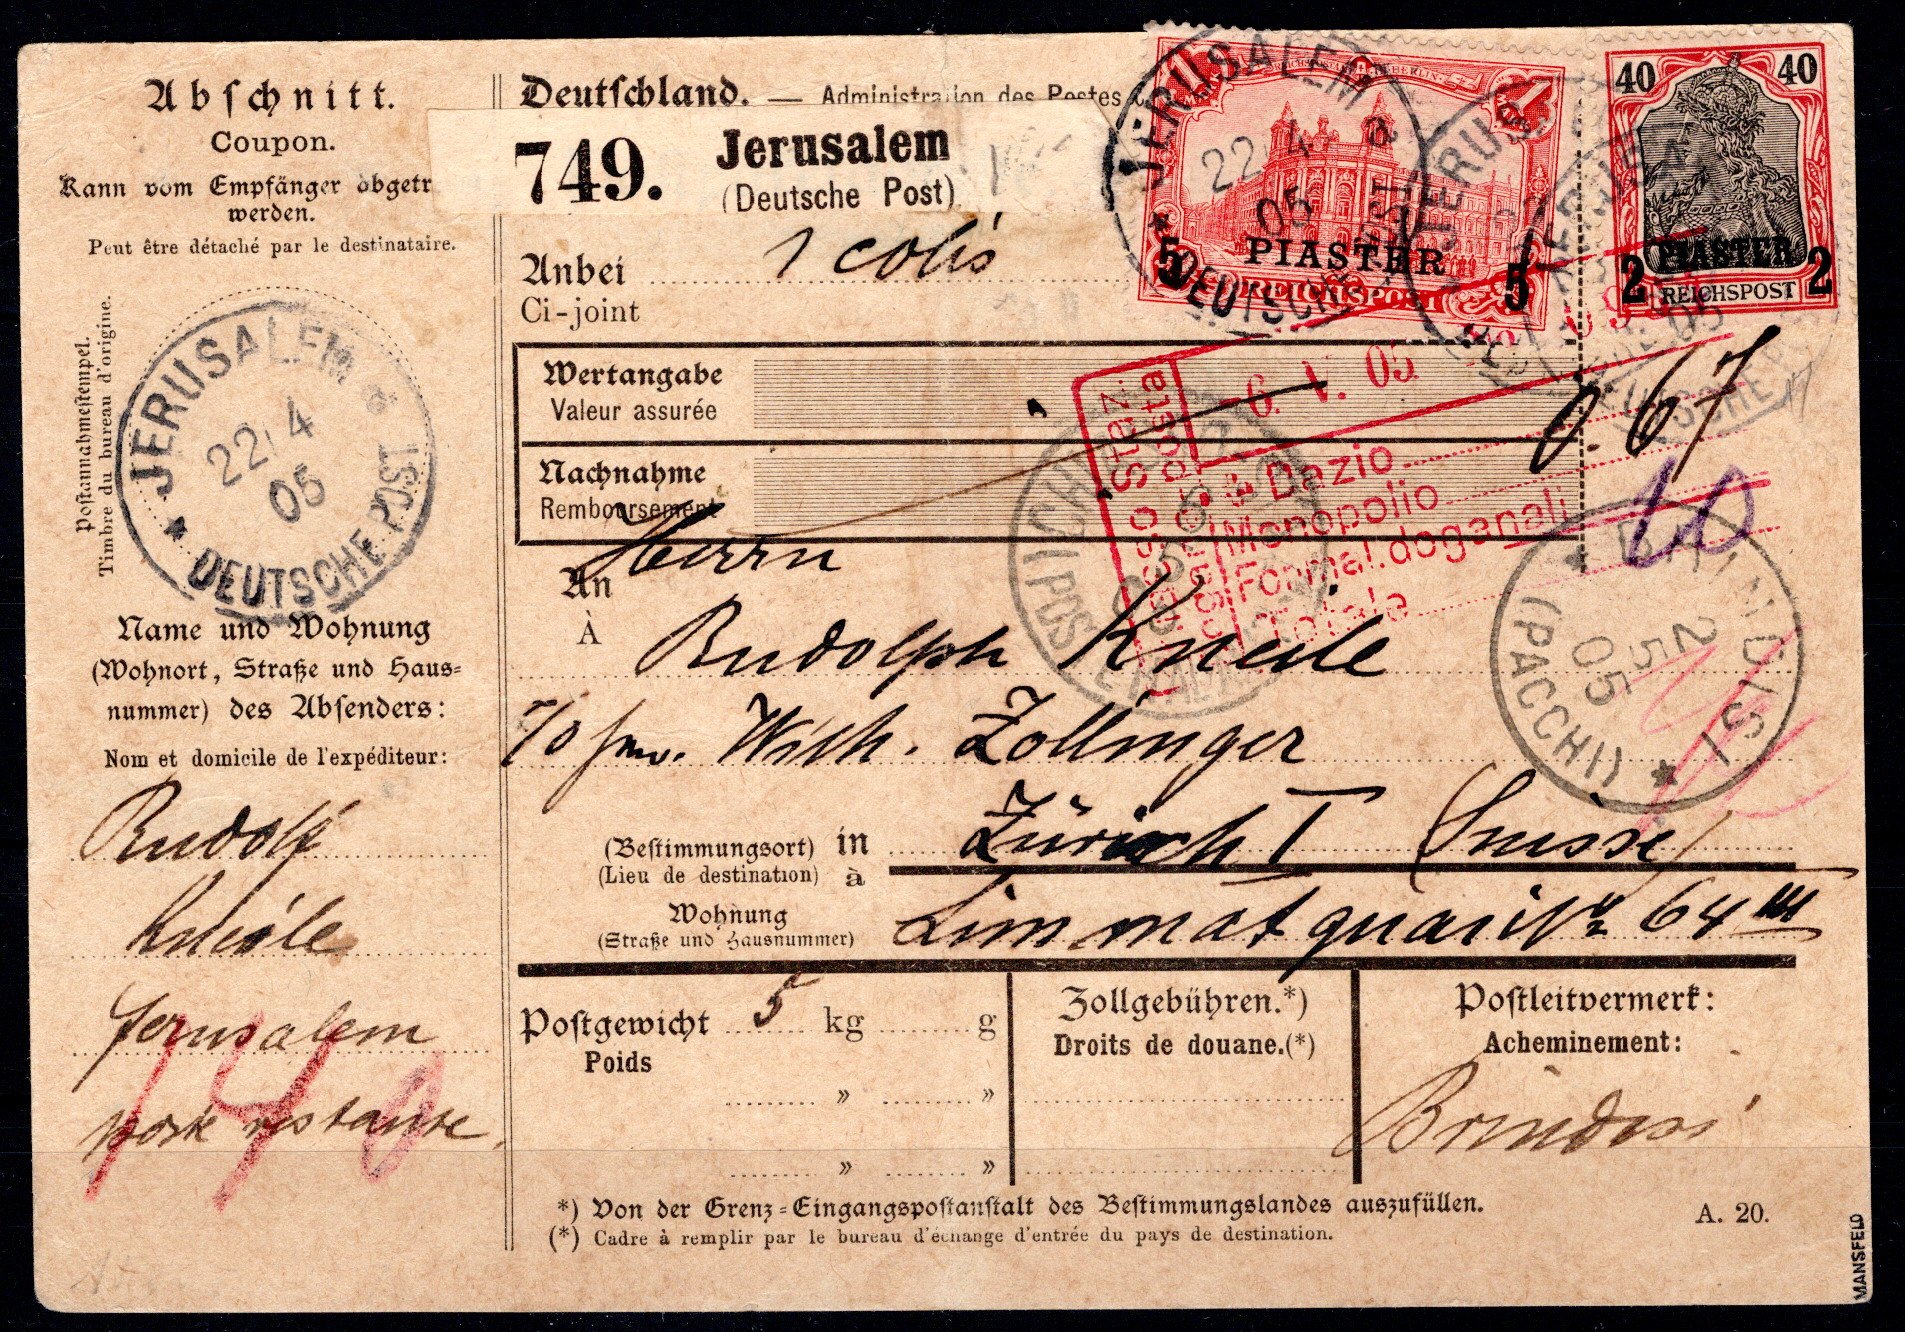 Abschnitt.
Coupon.
Kann vom Empfänger abgetr
werden.
Peut être détaché par le destinataire.
Postannahmestempel.
Timbre du bureau d'origine.
JERUSALEM a
22 4
05
* DEUTSCHE POST
Name und Wohnung
(Wohnort, Straße und Haus-
nummer) des Absenders:
Nom et domicile de l'expéditeur:
Rudolf
Kneile
Jerusalem
140
post restante.
Deutschland. — Administration des Postes
749. Jerusalem
(Deutsche Post)
Anbei 1 colis
Ci-joint
1 1
5 PIASTER 5
REICHSPOST
JERUSALEM a
22 4
05
* DEUTSCHE POST
40 40
2 PIASTER 2
REICHSPOST
Wertangabe
Valeur assurée
Nachnahme
Remboursement
6. V. 05
Dazio
Monopolio
Formal. doganali
Totale
0.67
10
BRINDISI
2 5
05
* (PACCHI) *
An Herrn
À Rudolph Kneile
c/o Wilh. Zollinger
(Bestimmungsort) in Zürich I Suisse
(Lieu de destination) à
Wohnung
(Straße und Hausnummer) Limmatquai No 64 III
Postgewicht 5 kg g
Poids
» »
» »
Zollgebühren.*)
Droits de douane.(*)
Postleitvermerk:
Acheminement:
Brindisi
*) Von der Grenz-Eingangspostanstalt des Bestimmungslandes auszufüllen.
(*) Cadre à remplir par le bureau d'échange d'entrée du pays de destination.
A. 20.
MANSFELD